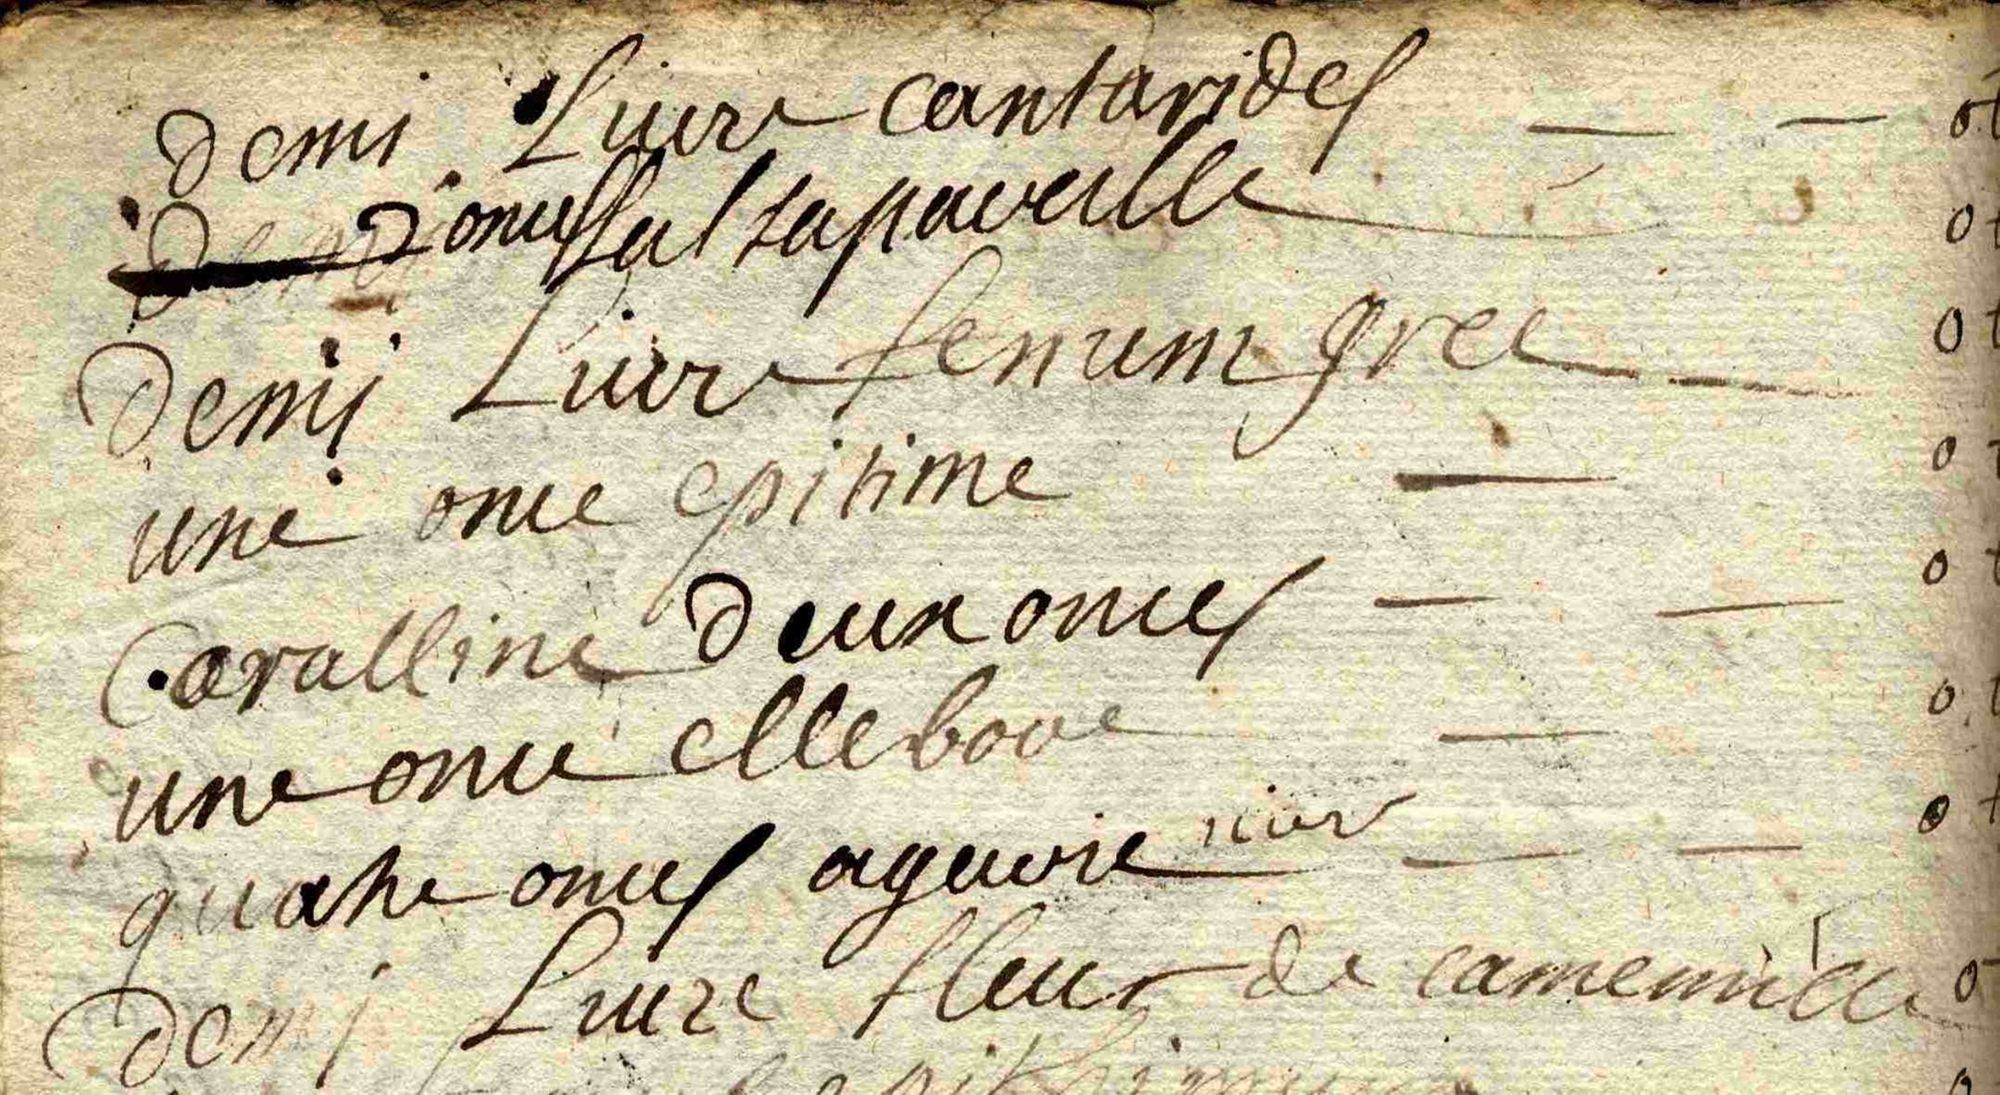 demi Livre cantarides — — 0
2 onces salsapareille 0
demi Livre fenum grec — 0
une once epitime — 0
Coralline deux onces — — 0
une once ellebore — 0
quatre onces agaric noir — — 0
demi Livre fleur de camemille 0